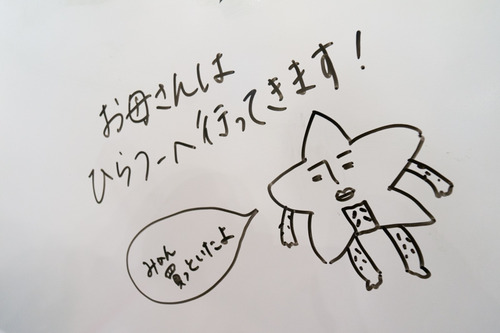 お母さんは
ひらフーへ行ってきます！
みかん
買っといたよ